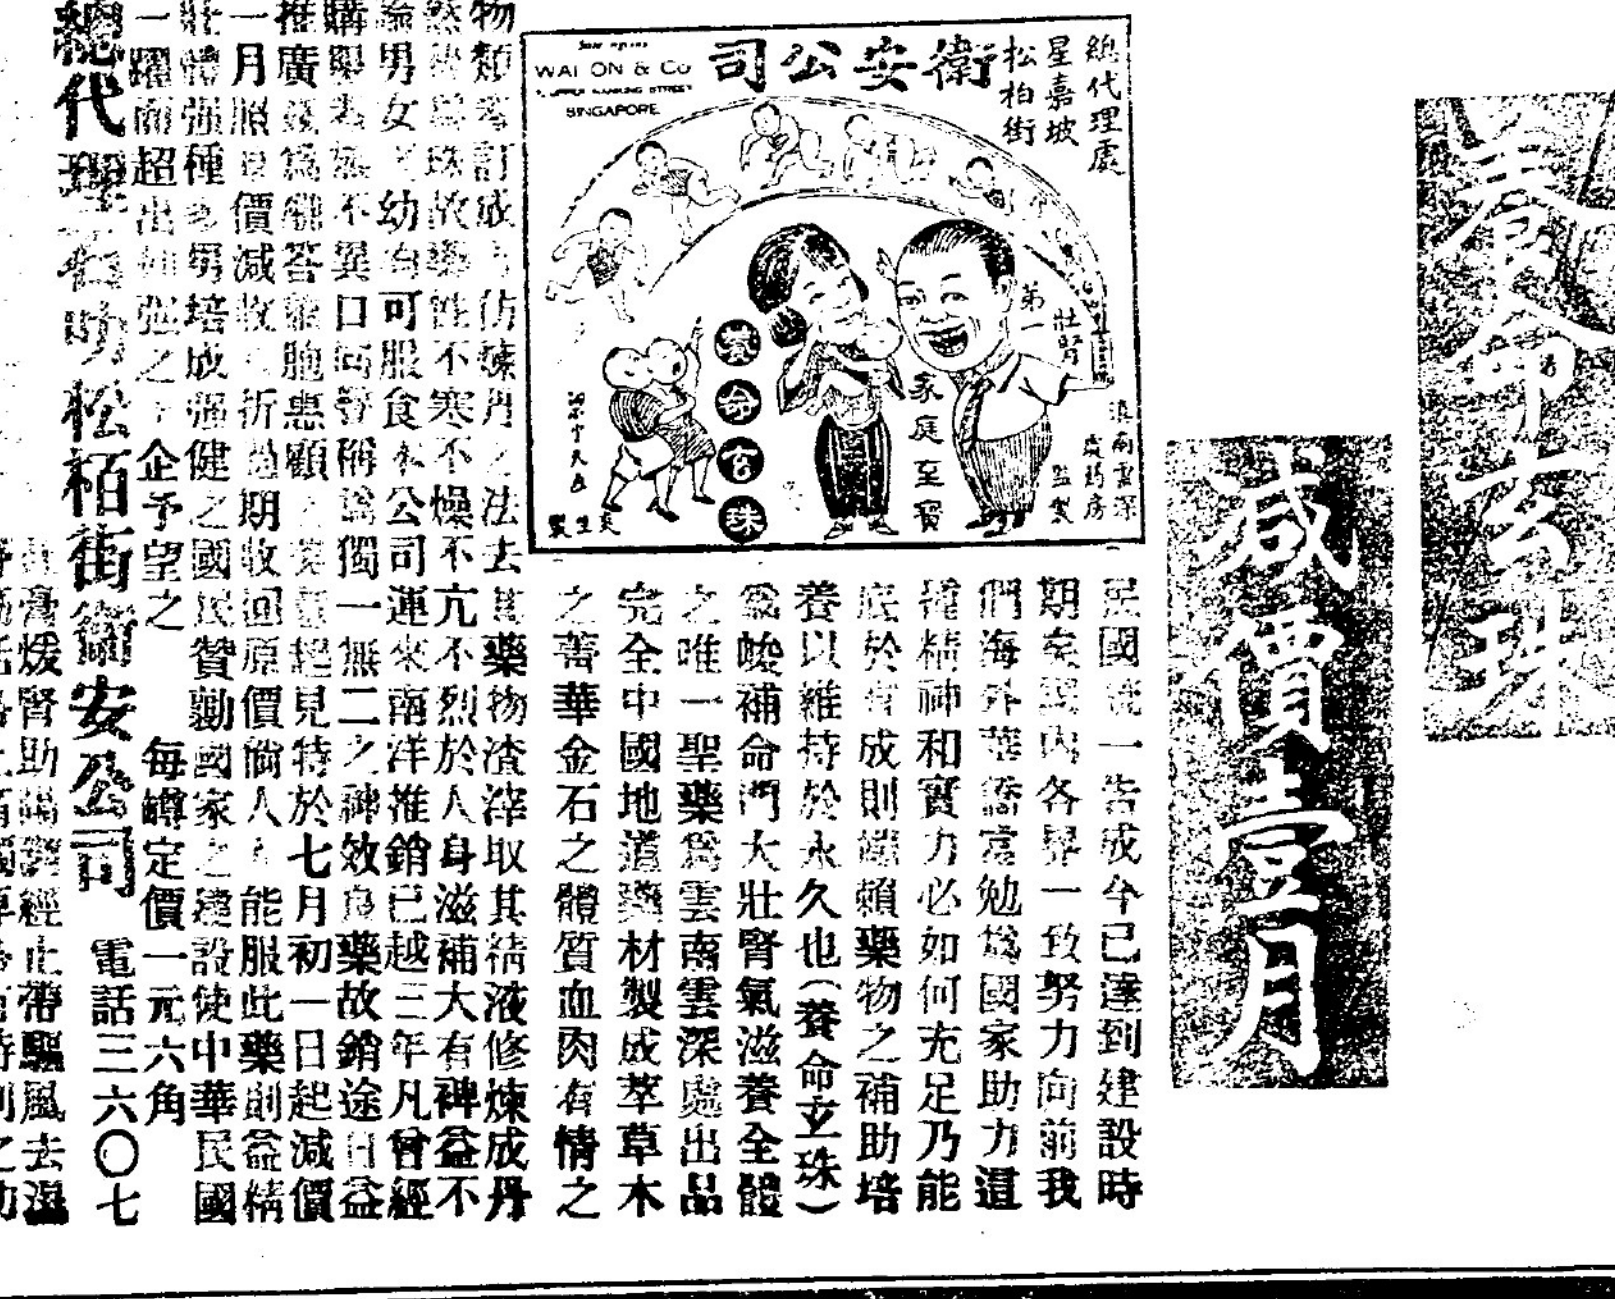 養命玄珠
減價壹月
總代理處
星嘉坡
松柏街
衛安公司
WAI ON & Co
UPPER NANKING STREET
SINGAPORE
第一
壯腎
家庭至寶
養命玄珠
滇南雲深
處药房
監製
民國統一告成今已達到建設時
期矣國內各界一致努力向前我
們海外華僑當勉為國家助力這
種精神和實力必如何充足乃能
底於有成則端賴藥物之補助培
養以維持於永久也(養命玄珠)
為峻補命門大壯腎氣滋養全體
之唯一聖藥為雲南雲深處出品
完全中國地道藥材製成萃草木
之菁華金石之體質血肉有情之
物類 訂成方仿煉丹之法去其藥物渣滓取其精液修煉成丹
珠故藥性不寒不燥不亢不烈於人身滋補大有裨益不
論男女老幼均可服食本公司運來南洋推銷已越三年凡曾經
購服者無不異口同聲稱為獨一無二之神效良藥故銷途日益
推廣 為酬答僑胞惠顧 起見特於七月初一日起減價
一月照 價減收 折過期收回原價倘人人能服此藥則益精
壯體强種之男培成强健之國民贊勷國家之建設使中華民國
一躍而超出 强之 企予望之 每罇定價一元六角
總代理 松栢街衛安公司 電話三六〇七
膏煖腎助陽調經止帶驅風去濕